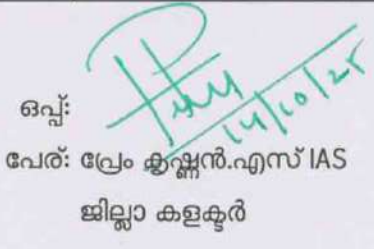 ഒപ്പ്:
14/10/25
പേര്: പ്രേം കൃഷ്ണൻ.എസ് IAS
ജില്ലാ കളക്ടർ